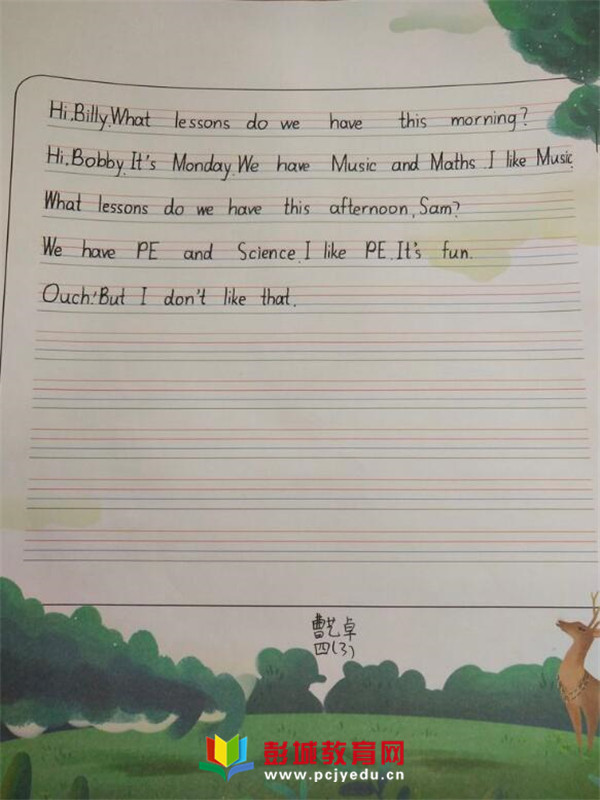 Hi, Billy. What lessons do we have this morning?
Hi, Bobby. It's Monday. We have Music and Maths. I like Music.
What lessons do we have this afternoon, Sam?
We have PE and Science. I like PE. It's fun.
Ouch! But I don't like that.
曹艺卓
四(3)
彭城教育网
www.pcjyedu.cn